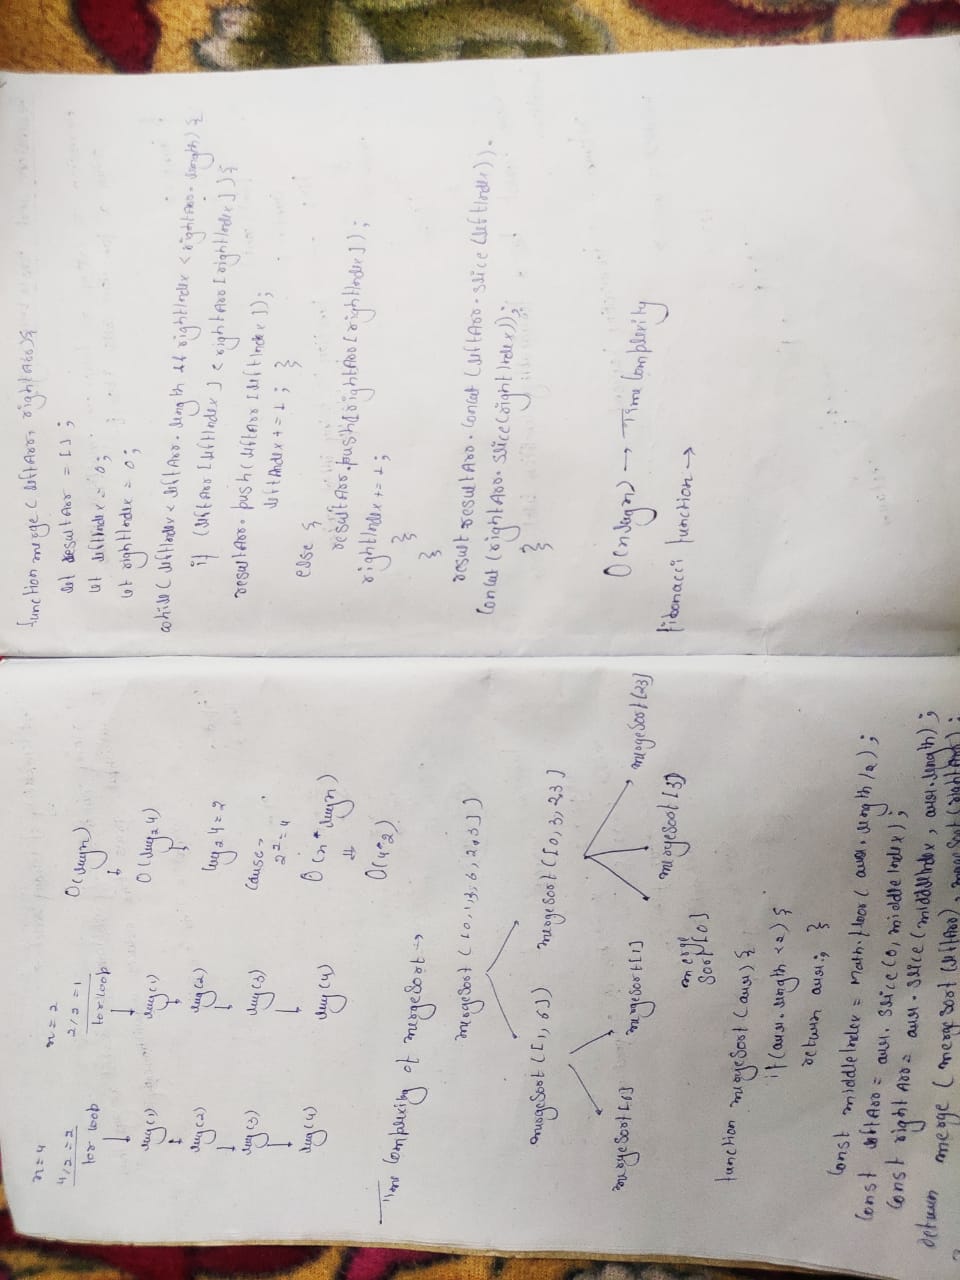 n=4
4/2=2
for loop
log(1)
log(2)
log(3)
log(4)
n=2
2/2=1
for loop
log(1)
log(2)
log(3)
log(4)
O(logn)
O(log₂4)
log₂4=2
cause,
2²=4
O(n*logn)
O(4*2)
Time Complexity of mergeSort →
mergeSort([
mergeSort([1, 6]) mergeSort([0, 3, 23])
mergeSort[6] mergeSort[1] merge
Sort[0] mergeSort[3] mergeSort[23]
function mergeSort(arr){
if(arr.length<2){
return arr; }
const middleIndex = Math.floor(arr.length/2);
const leftArr = arr.slice(0, middleIndex);
const rightArr = arr.slice(middleIndex, arr.length);
return merge(mergeSort(leftArr), mergeSort(rightArr);
function merge(leftArr, rightArr){
let resultArr = [];
let leftIndex = 0;
let rightIndex = 0;
while(leftIndex<leftArr.length && rightIndex<rightArr.length){
if(leftArr[leftIndex]<rightArr[rightIndex]){
resultArr.push(leftArr[leftIndex]);
leftIndex+=1; }
else {
resultArr.push[rightArr[rightIndex]);
rightIndex+=1;
}
}
result resultArr.concat(leftArr.slice(leftIndex)).
concat(rightArr.slice(rightIndex));
}
O(nlogn) → Time Complexity
fibonacci function →